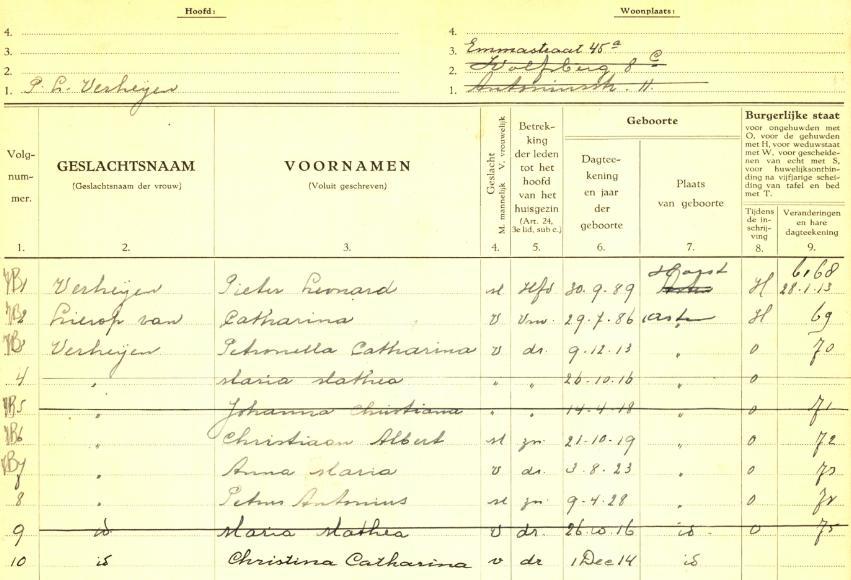 Hoofd:
4.
3.
2.
1. P. L. Verheijen
Woonplaats:
4.
3. Emmastraat 45a
2. Wolfsberg 8 c
1. Antoniusstr. 11.
Volg-
num-
mer.
1.
GESLACHTSNAAM
(Geslachtsnaam der vrouw)
2.
VOORNAMEN
(Voluit geschreven)
3.
Geslacht
M. mannelijk V. vrouwelijk
4.
Betrek-
king
der leden
tot het
hoofd
van het
huisgezin
(Art. 24,
3e lid, sub e.)
5.
Geboorte
Dagtee-
kening
en jaar
der
geboorte
6.
Plaats
van geboorte
7.
Burgerlijke staat
voor ongehuwden met
O, voor de gehuwden
met H, voor weduwstaat
met W, voor gescheide-
nen van echt met S,
voor huwelijksonthbin-
ding na vijfjarige schei-
ding van tafel en bed
met T.
Tijdens
de in-
schrij-
ving
8.
Veranderingen
en hare
dagteekening
9.
VB1 Verheijen Pieter Leonard M Hfd 30.9.89 Horst H 28.1.13
VB2 Lierop van Catharina v Vrw. 29.7.86 Asten H 69
VB3 Verheijen Petronella Catharina v dr. 9.12.13 " o 70
4 " Maria Mathea " " 26.10.16 " o
VB5 " Johanna Christiana " " 14.4.18 " o 71
VB6 " Christiaan Albert M zn. 21-10.19 " o 72
VB7 " Anna Maria v dr. 3.8.23 " o 73
8 " Petrus Antonius M zn. 9-4.28 " o 74
9 id Maria Mathea v dr. 26.10.16 id o 75
10 id Christina Catharina v dr 1 Dec 14 id